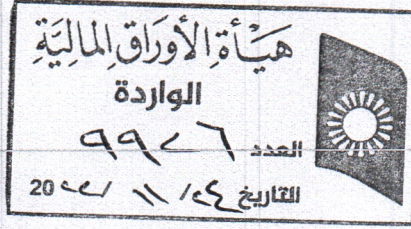 هَيْأَةِ الأَوْرَاقِ المَالِيَّةِ
الواردة
العدد ٩٩٢٦
التاريخ ٢٤/ ١١ / 20٢٢